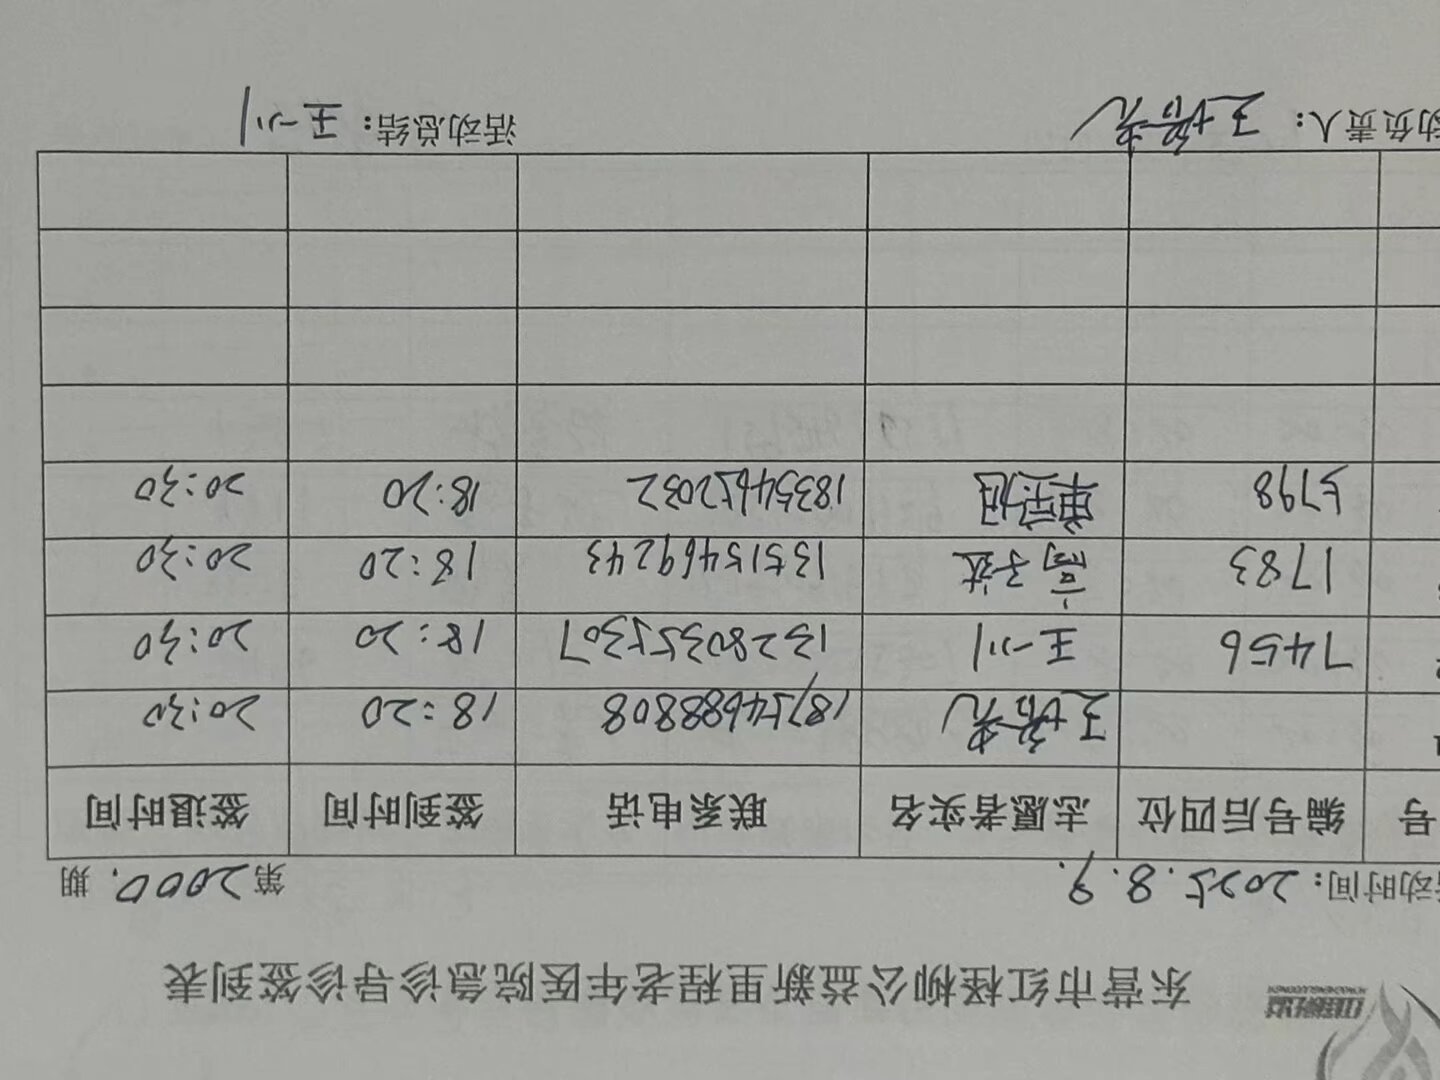 红柽柳
东营市红柽柳公益新里程老年医院急诊导诊签到表
活动时间：2025.8.9. 第2000.期
号 编号后四位 志愿者实名 联系电话 签到时间 签退时间
1 18754688808 18:20 20:30
2 7456 王一川 13280355307 18:20 20:30
1783 高子达 13515469243 18:20 20:30
5798 18354652032 18:20 20:30
动负责人： 活动总结：王一川